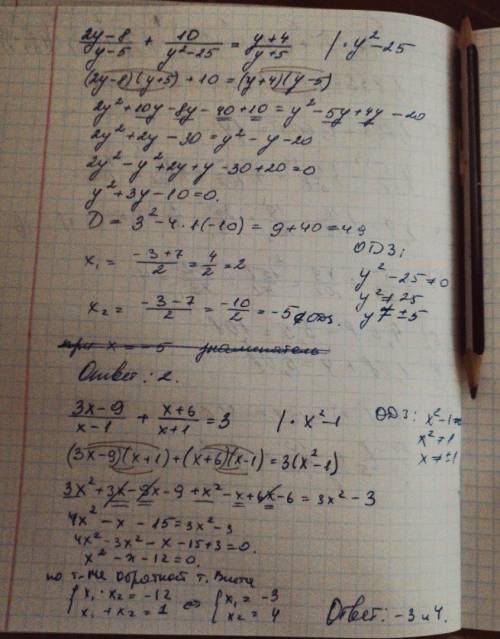 (2y-8)/(y-5) + 10/(y²-25) = (y+4)/(y+5) | · y²-25
(2y-8)(y+5) + 10 = (y+4)(y-5)
2y² + 10y - 8y - 40 + 10 = y² - 5y + 4y - 20
2y² + 2y - 30 = y² - y - 20
2y² - y² + 2y + y - 30 + 20 = 0
y² + 3y - 10 = 0.
D = 3² - 4 · 1(-10) = 9 + 40 = 49
x₁ = (-3+7)/2 = 4/2 = 2
x₂ = (-3-7)/2 = -10/2 = -5 ∉ ОДЗ.
ОДЗ:
y² - 25 ≠ 0
y² ≠ 25
y ≠ ±5
при x = -5 знаменатель
Ответ: 2.
(3x-9)/(x-1) + (x+6)/(x+1) = 3 | · x²-1
ОДЗ: x²-1≠0
x² ≠ 1
x ≠ ±1
(3x-9)(x+1) + (x+6)(x-1) = 3(x²-1)
3x² + 3x - 9x - 9 + x² - x + 6x - 6 = 3x² - 3
4x² - x - 15 = 3x² - 3
4x² - 3x² - x - 15 + 3 = 0.
x² - x - 12 = 0.
по т-ме обратной т. Виета
{ x₁ · x₂ = -12 ⇔ { x₁ = -3
x₁ + x₂ = 1 x₂ = 4
Ответ: -3 и 4.